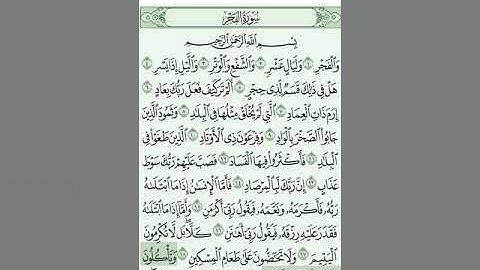 سُورَةُ الفَجْرِ
بِسْمِ اللَّهِ الرَّحْمَٰنِ الرَّحِيمِ
وَالْفَجْرِ ١ وَلَيَالٍ عَشْرٍ ٢ وَالشَّفْعِ وَالْوَتْرِ ٣ وَاللَّيْلِ إِذَا يَسْرِ ٤
هَلْ فِي ذَٰلِكَ قَسَمٌ لِّذِي حِجْرٍ ٥ أَلَمْ تَرَ كَيْفَ فَعَلَ رَبُّكَ بِعَادٍ ٦
إِرَمَ ذَاتِ الْعِمَادِ ٧ الَّتِي لَمْ يُخْلَقْ مِثْلُهَا فِي الْبِلَادِ ٨ وَثَمُودَ الَّذِينَ
جَابُوا الصَّخْرَ بِالْوَادِ ٩ وَفِرْعَوْنَ ذِي الْأَوْتَادِ ١٠ الَّذِينَ طَغَوْا فِي
الْبِلَادِ ١١ فَأَكْثَرُوا فِيهَا الْفَسَادَ ١٢ فَصَبَّ عَلَيْهِمْ رَبُّكَ سَوْطَ
عَذَابٍ ١٣ إِنَّ رَبَّكَ لَبِالْمِرْصَادِ ١٤ فَأَمَّا الْإِنسَانُ إِذَا مَا ابْتَلَاهُ
رَبُّهُ فَأَكْرَمَهُ وَنَعَّمَهُ فَيَقُولُ رَبِّي أَكْرَمَنِ ١٥ وَأَمَّا إِذَا مَا ابْتَلَاهُ
فَقَدَرَ عَلَيْهِ رِزْقَهُ فَيَقُولُ رَبِّي أَهَانَنِ ١٦ كَلَّا بَل لَّا تُكْرِمُونَ
الْيَتِيمَ ١٧ وَلَا تَحَاضُّونَ عَلَىٰ طَعَامِ الْمِسْكِينِ ١٨ وَتَأْكُلُونَ